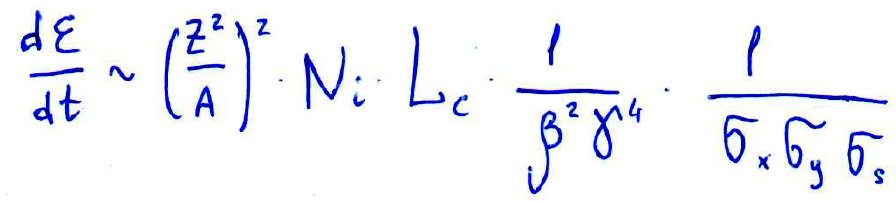 dε/dt ~ (Z²/A)² · N_i · L_c · 1/(β²γ⁴) · 1/(σ_x σ_y σ_s)